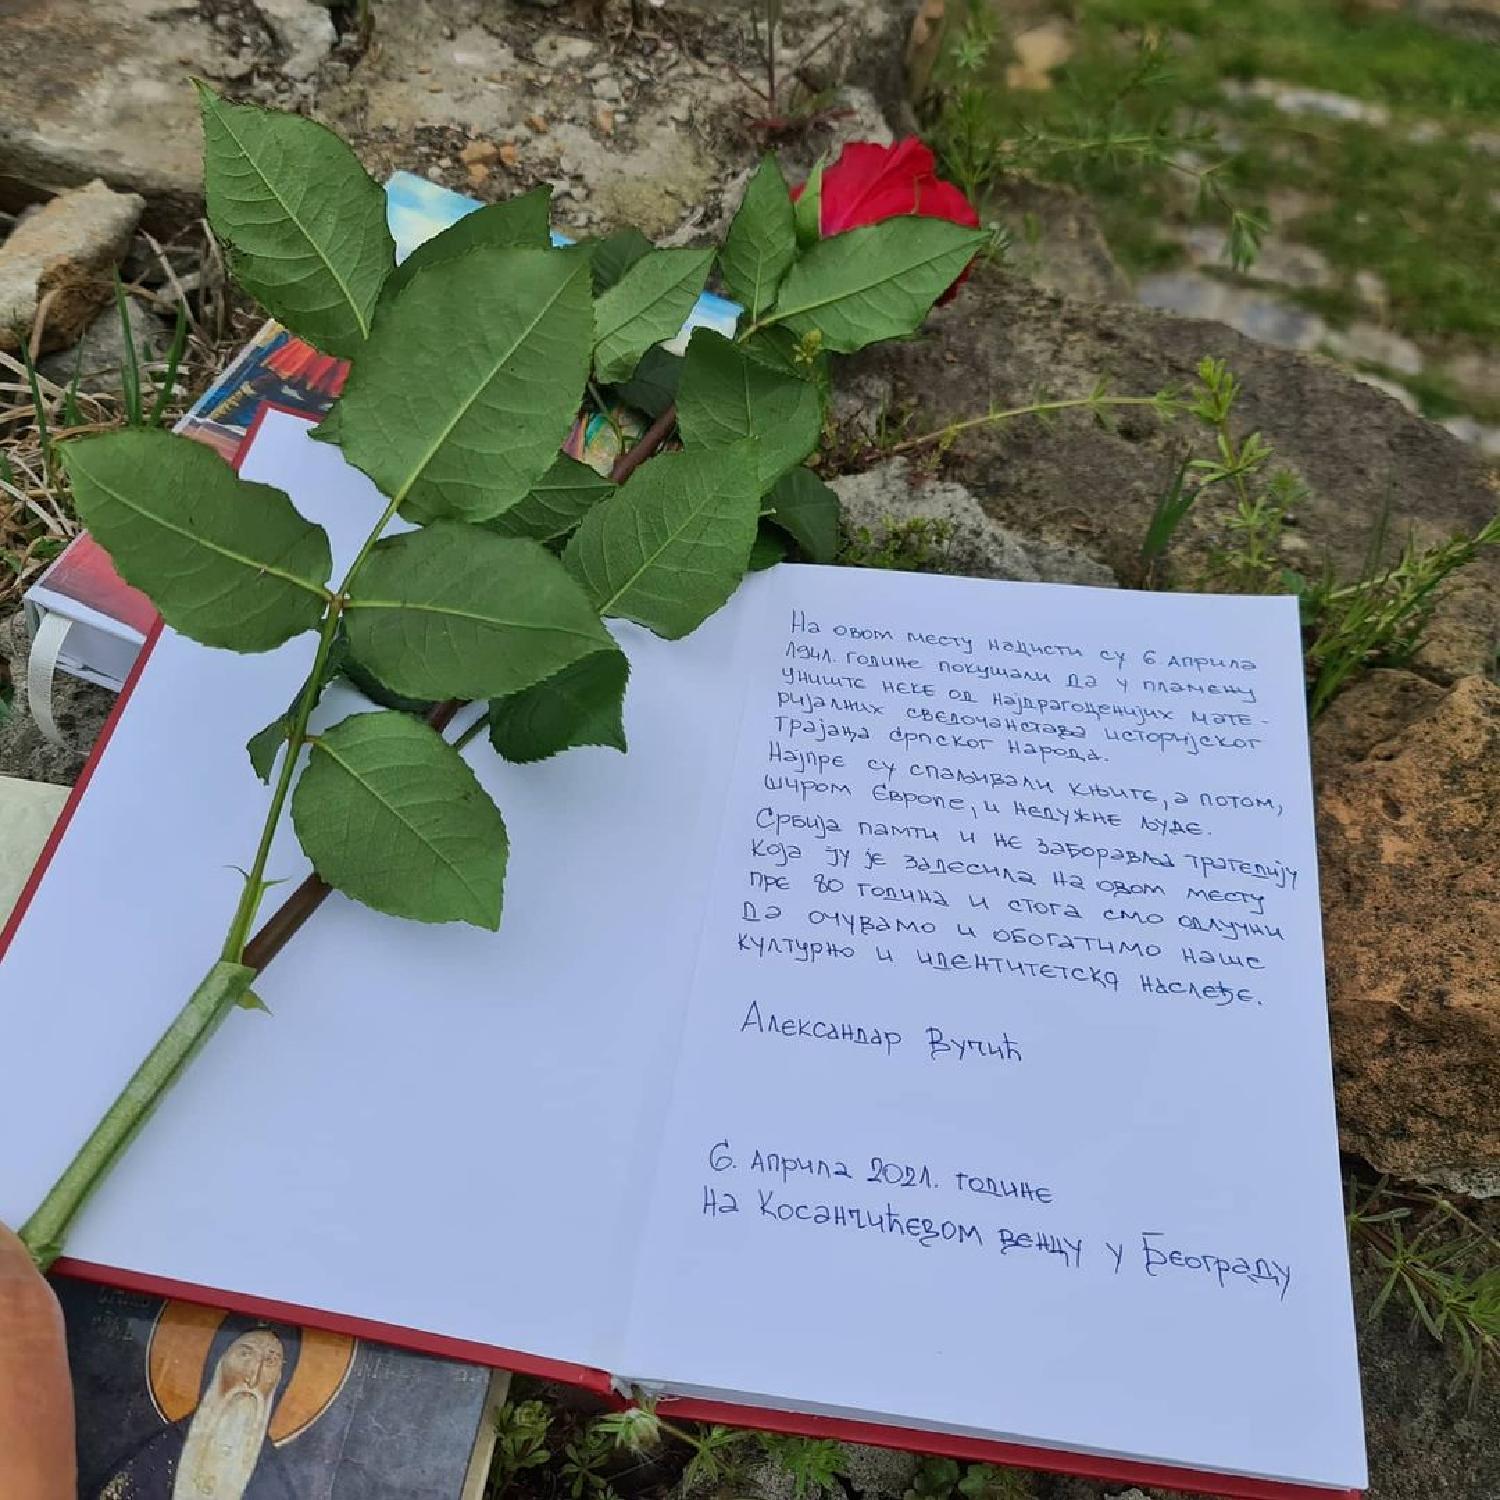 На овом месту нацисти су 6. априла
1941. године покушали да у пламену
униште неке од најдрагоценијих мате-
ријалних сведочанстава историјског
трајања српског народа.
Најпре су спаљивали књиге, а потом,
широм Европе, и недужне људе.
Србија памти и не заборавља трагедију
која ју је задесила на овом месту
пре 80 година и стога смо одлучни
да очувамо и обогатимо наше
културно и идентитетска наслеђе.
Александар Вучић
6. априла 2021. године
на Косанчићевом венцу у Београду